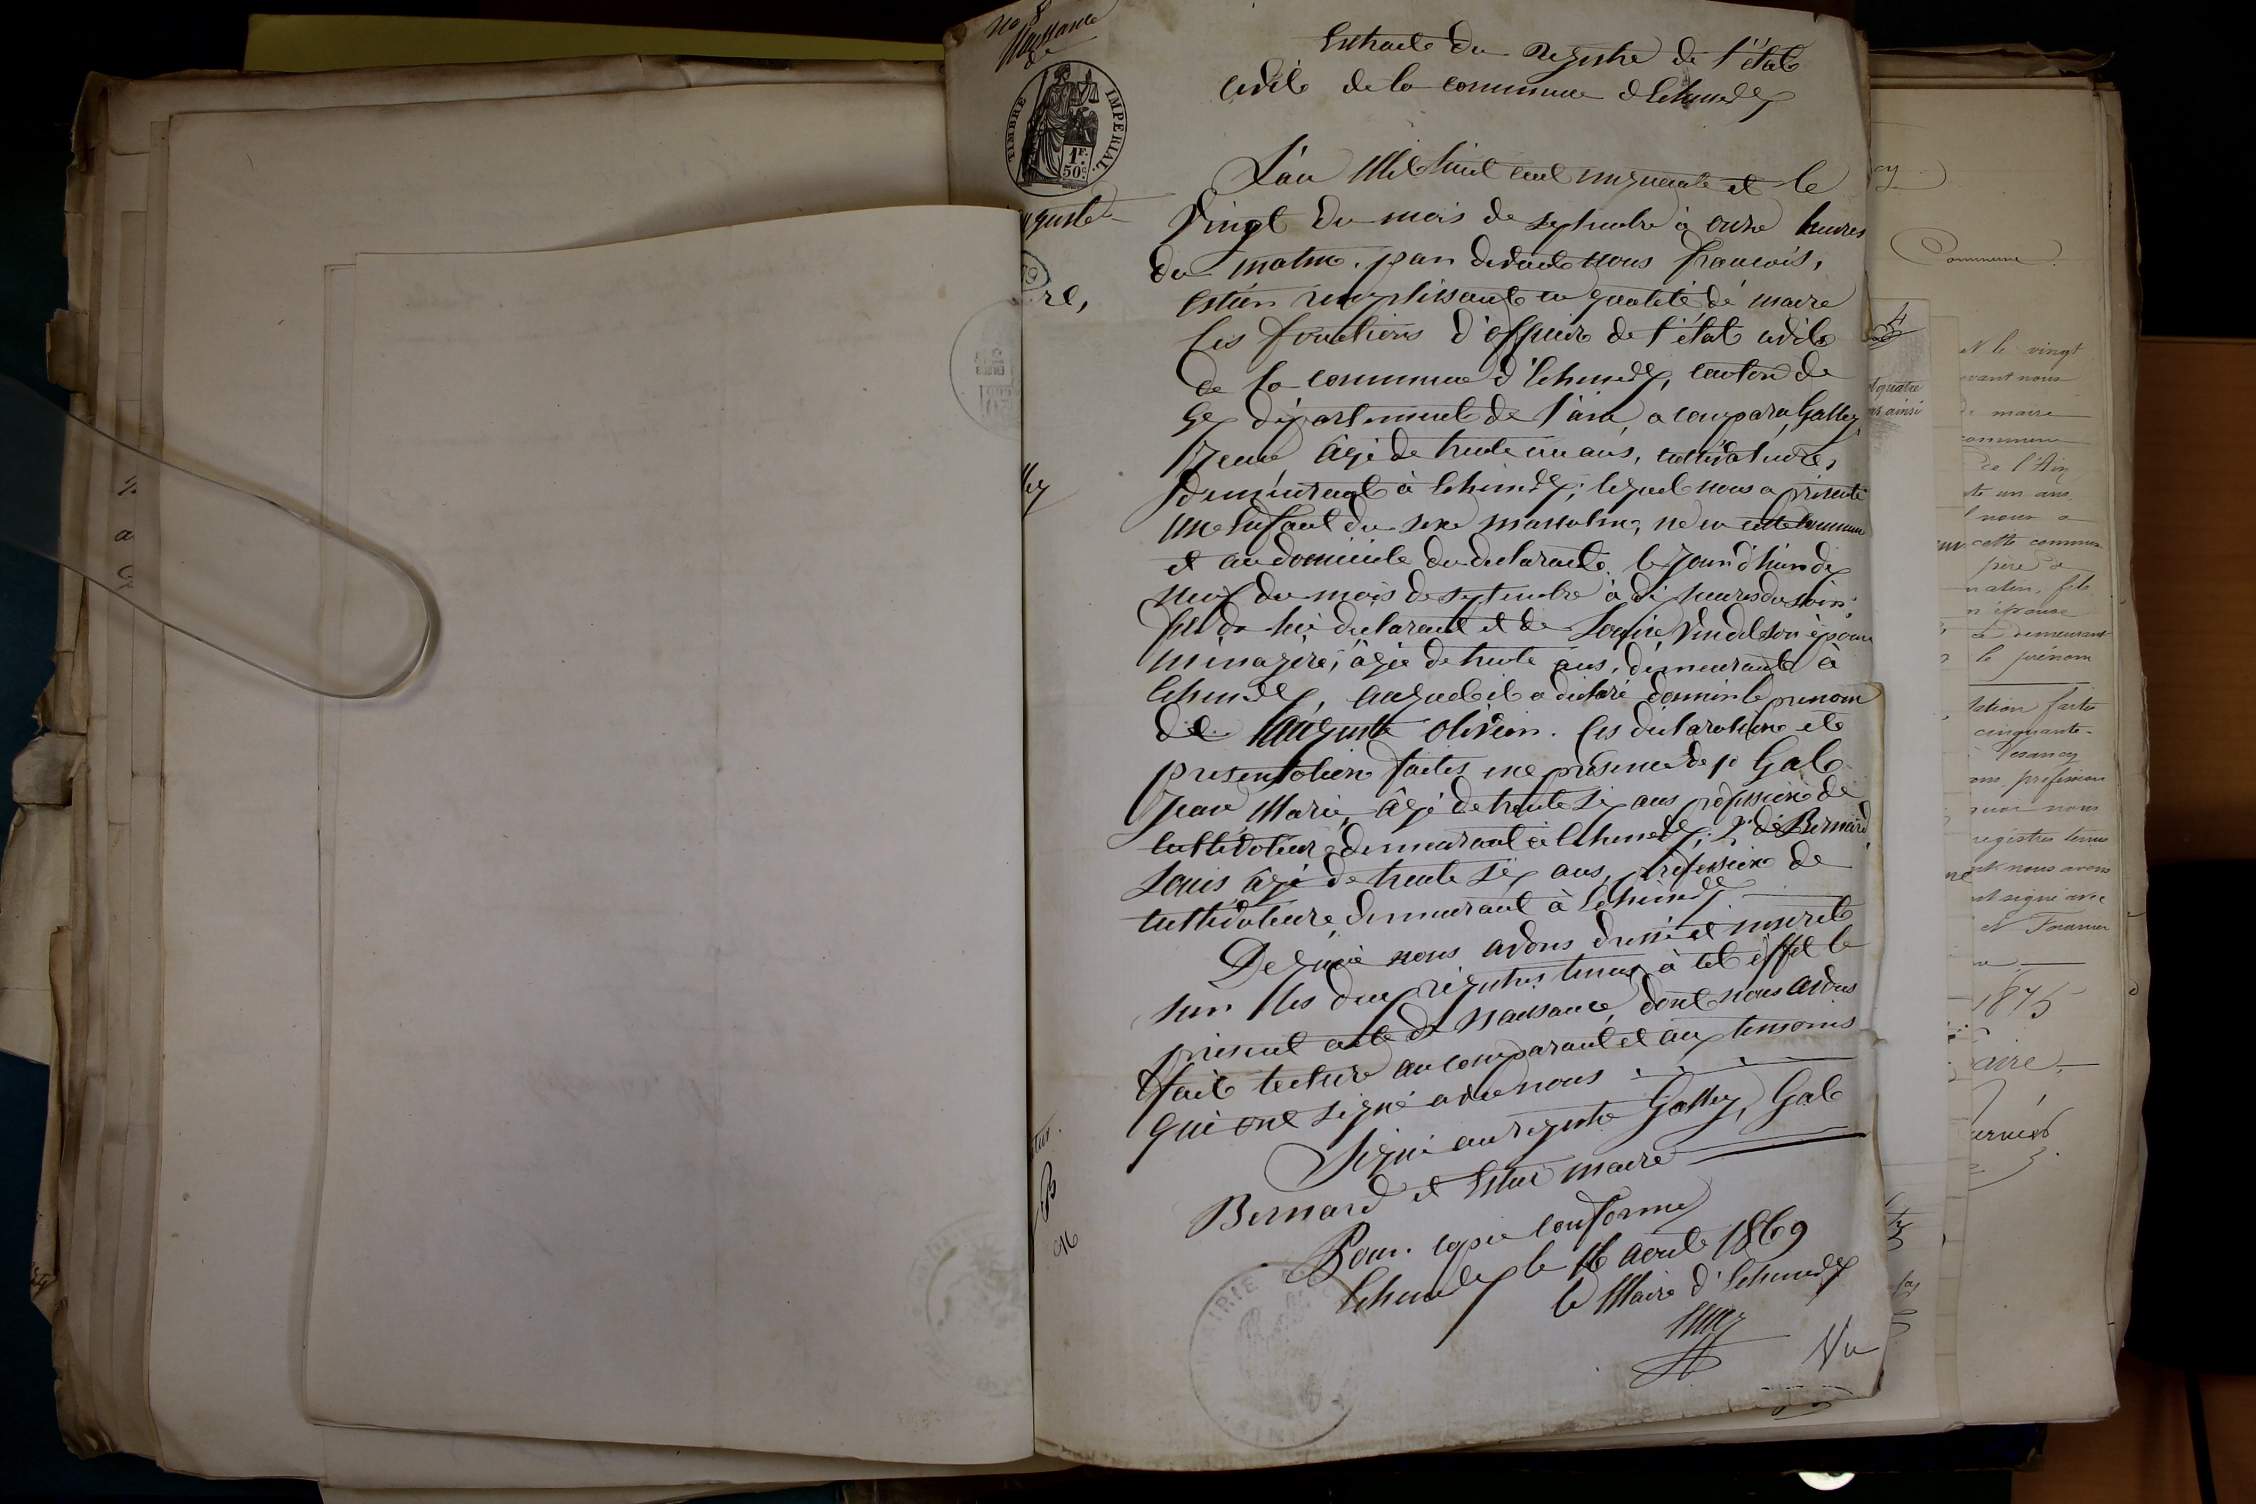 No 8
Naissance
de
TIMBRE IMPERIAL
1F.
50c.
Extrait du Registre de l'état
civile de la commune d'Echenevex
L'an Mil huit cent cinquante et le
Vingt du mois de septembre à onze heures
du matin. par devant nous François,
estier remplissant en qualité de maire
les fonctions d'officier de l'état civile
de la commune d'Echenevex, canton de
Gex département de l'ain, a comparu Gallay
Jean âgé de trente un ans, cultivateure,
demeurant à Echenevex; lequel nous a présenté
une enfant du sexe masculin, né en cette commune
et au domicile du declarant le jour d'hier dix
neuf du mois de septembre à dix heures du soir;
fils de lui declarant et de Louise épouse
ménagère, âgée de trente ans, demeurante à
Echenevex, auquel il a déclaré donner le prenom
de Auguste olivier. les declaration et
presentation faites en présence de 1o Gal
Jean Marie, âgé de trente six ans profession de
cultivateur demeurant à Echenevex; 2o de Bernard
Louis âgé de trente six ans, profession de
cultivateure, demeurant à Echenevex.
De quoi nous avons dressé et inscrit
sur les deux régistres tenus à tel éffet le
présent acte de Naissance, dont nous avons
fait lecture au comparant et aux temoins
qui ont signé avec nous
Signé au registre Gallay, Gal
Bernard et maire
Pour copie conforme
Echenevex le 16 août 1869
le Maire d'Echenevex
Vu
guste
re,
ey
MAIRIE
Commune
et le vingt
evant nous
de maire
commune
de l'Ain
te un ans
l nous a
cette commun
père d
matin, fils
n épouse
demeurant
le prénom
tation faites
cinquante-
Vesancy
ans, profession
quoi nous
registres tenus
nt nous avons
nt signé avec
et Fournier
1875
aire
t quatre
ainsi